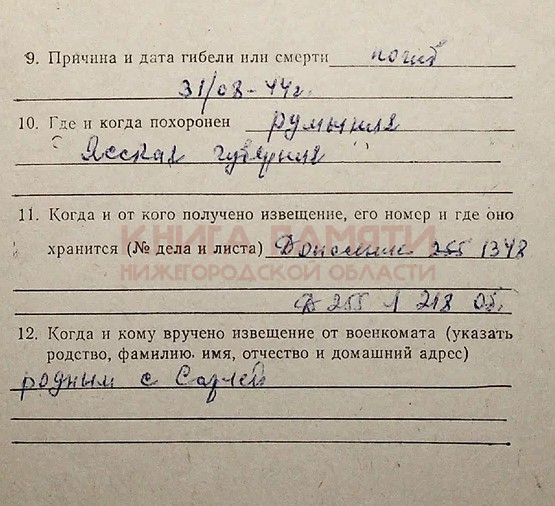 9. Причина и дата гибели или смерти погиб
31/08-44г.
10. Где и когда похоронен румыния
Ясская губерния
11. Когда и от кого получено извещение, его номер и где оно
КНИГА ПАМЯТИ
хранится (№ дела и листа) Донесение 255 1348
НИЖЕГОРОДСКОЙ ОБЛАСТИ
Д 255 л 218 об.
12. Когда и кому вручено извещение от военкомата (указать
родство, фамилию, имя, отчество и домашний адрес)
родным с Сарлей